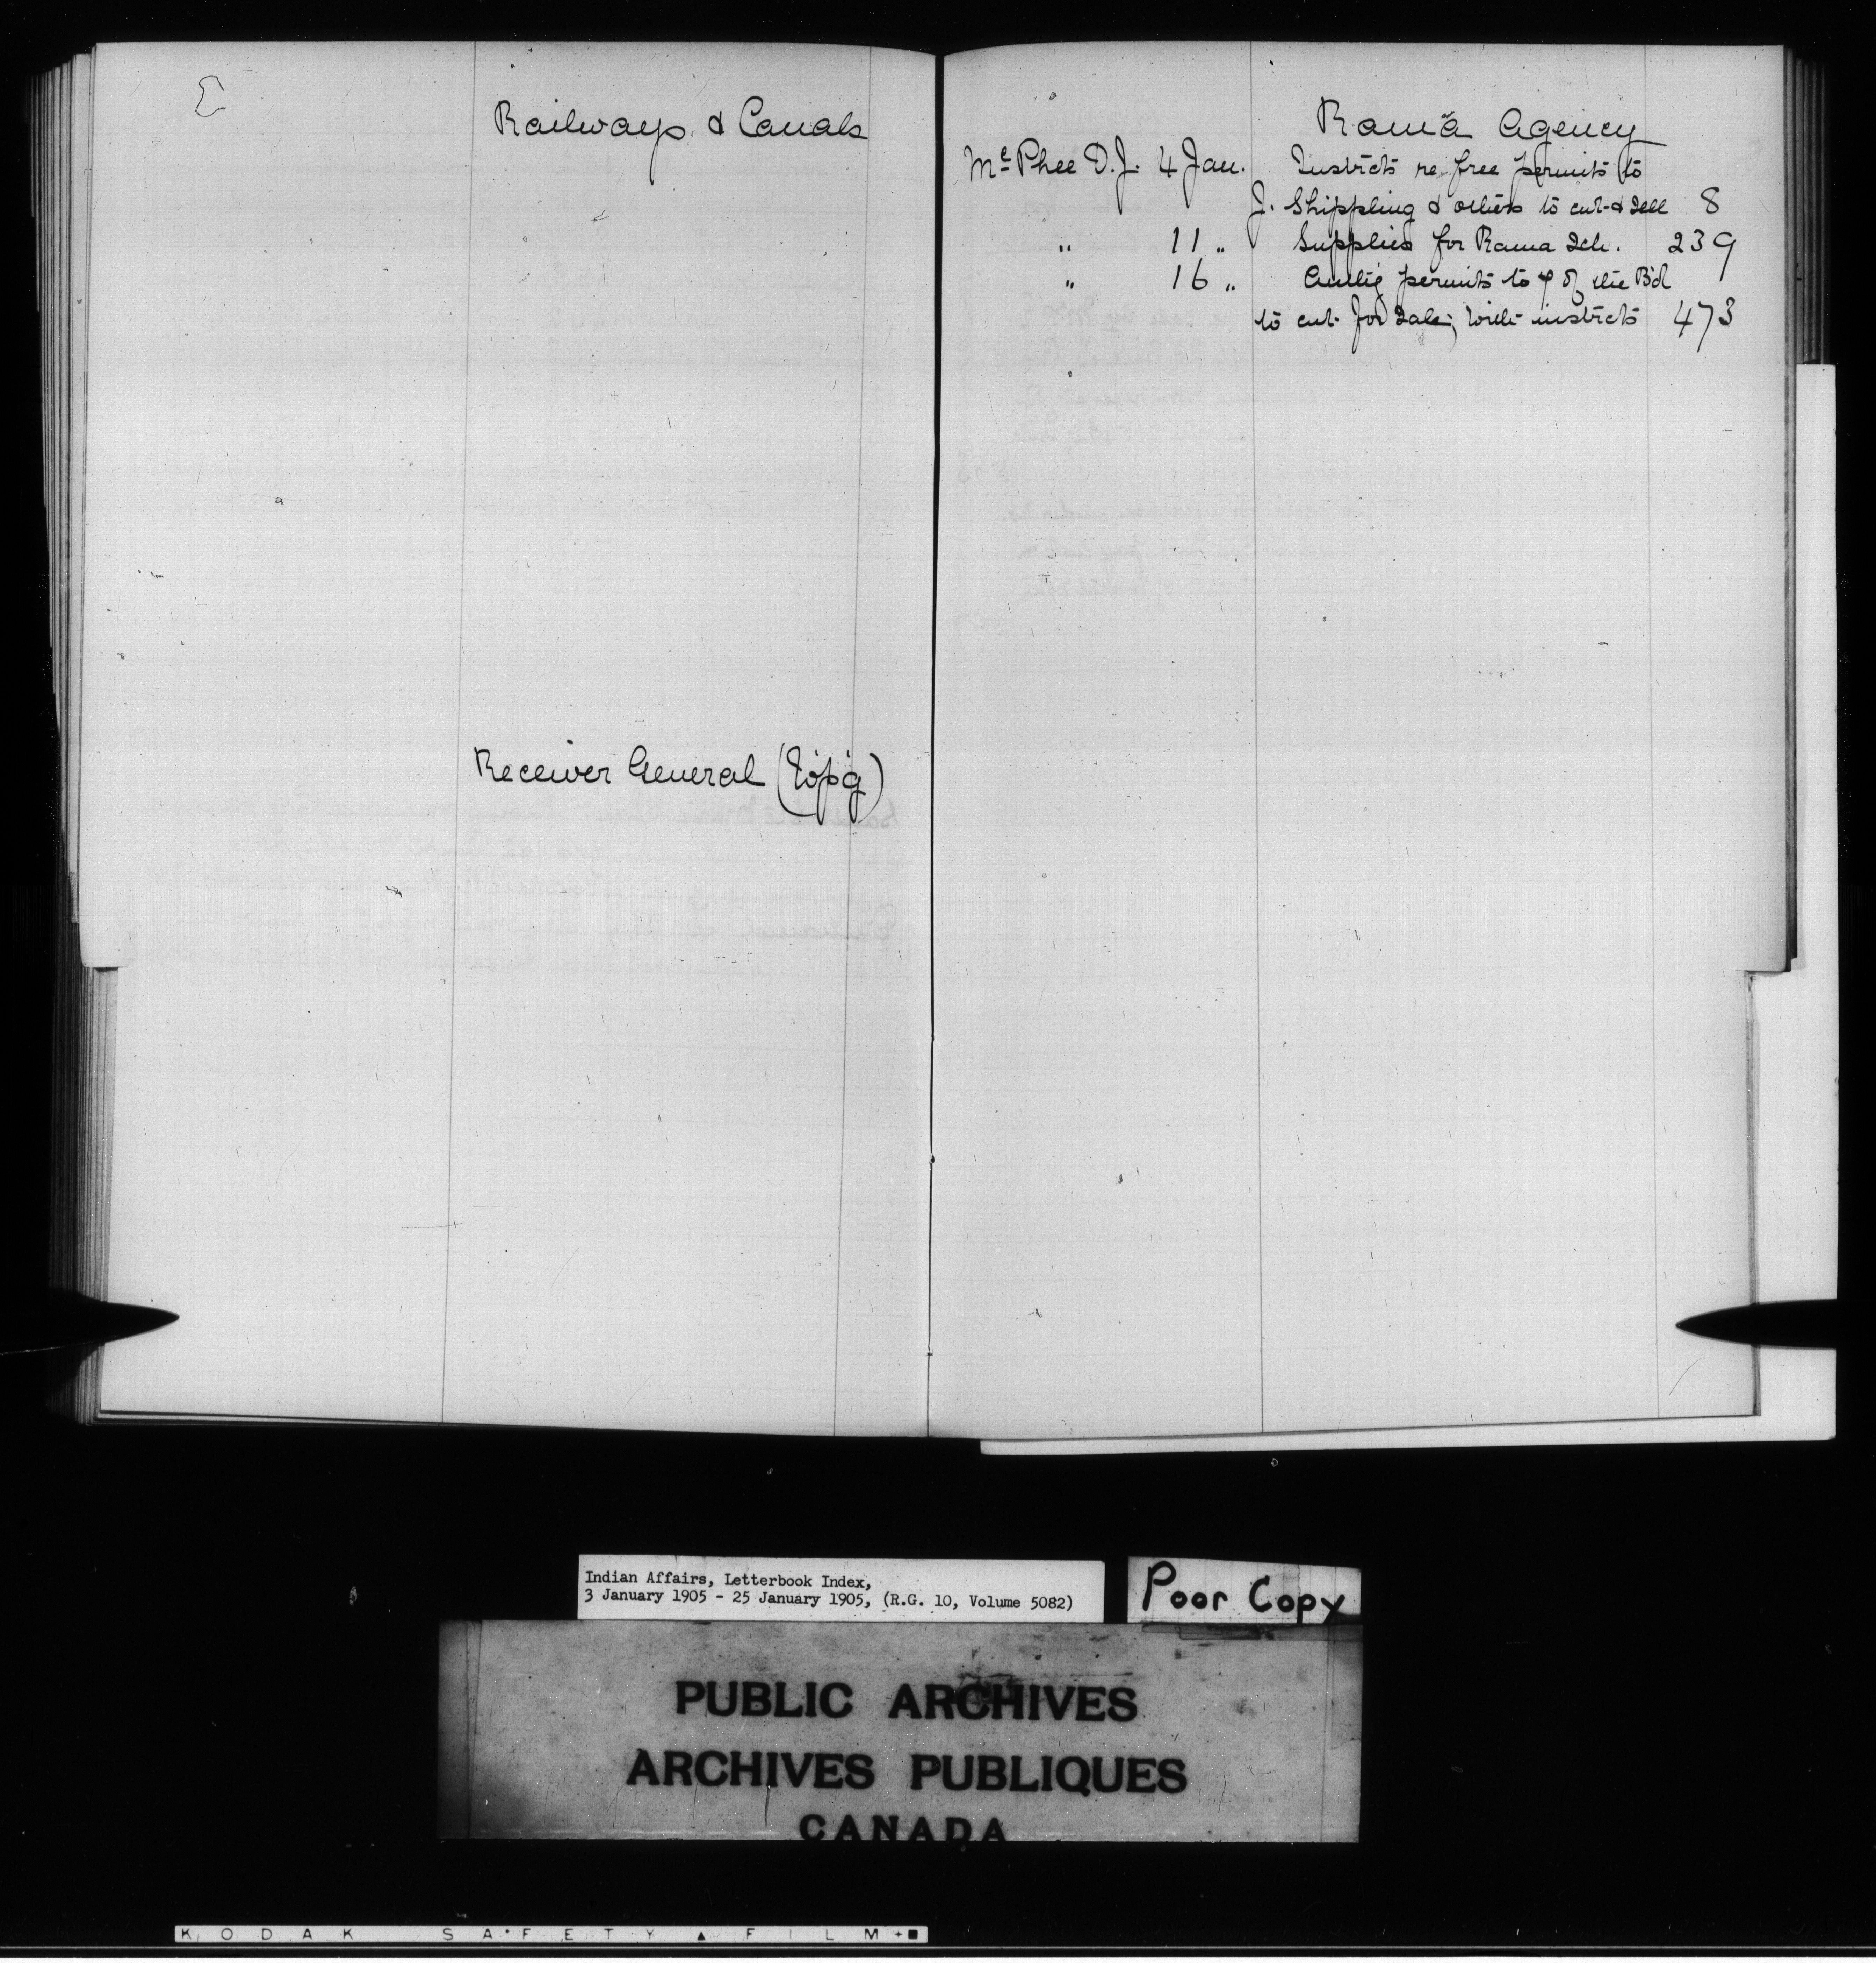 Railways & Canals
Receiver General
Rama Agency
McPhee D.J. 4 Jan. Instrcts re free permits to
J. Shippling & others to cut & sell 8
" 11 " Supplies for Rama Sch. 239
" 16 " permits to 4 of the Bd
to cut for sale; with instrcts 473
Indian Affairs, Letterbook Index,
3 January 1905 - 25 January 1905, (R.G. 10, Volume 5082)
Poor Copy
PUBLIC ARCHIVES
ARCHIVES PUBLIQUES
CANADA
KODAK SAFETY FILM